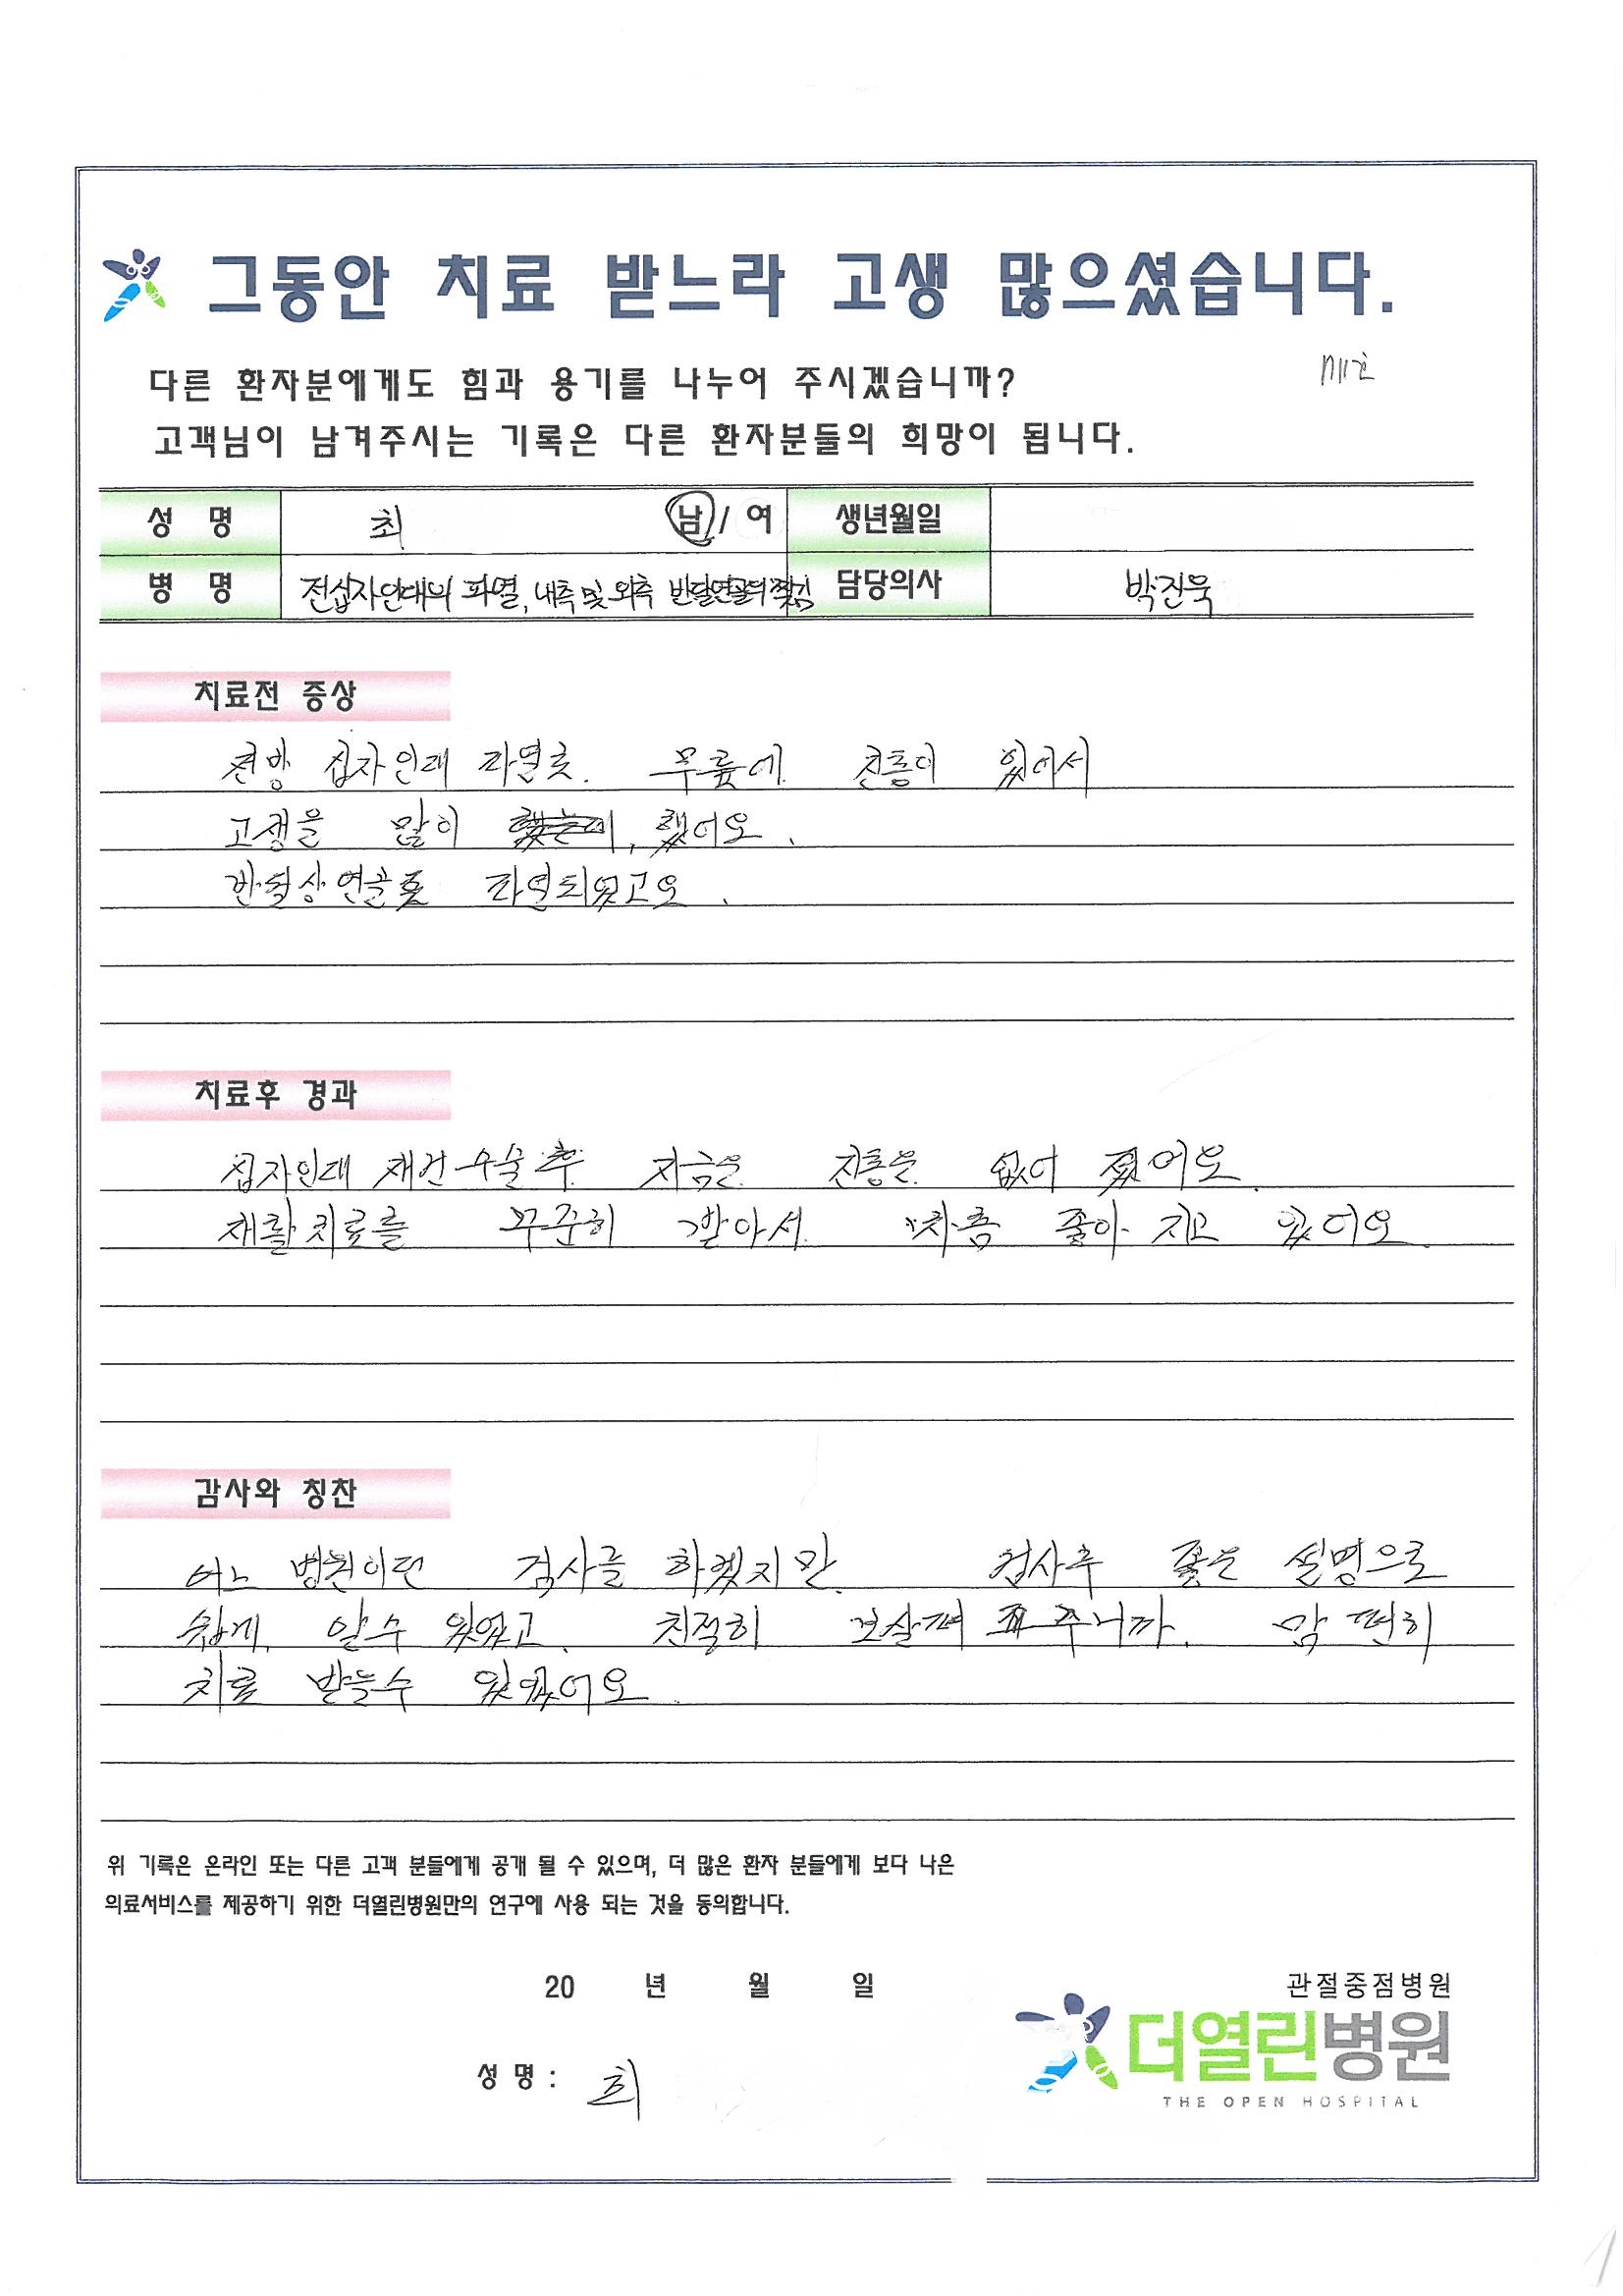 그동안 치료 받느라 고생 많으셨습니다.
다른 환자분에게도 힘과 용기를 나누어 주시겠습니까?
고객님이 남겨주시는 기록은 다른 환자분들의 희망이 됩니다.
성 명 최 남 / 여 생년월일
병 명 전십자인대의 파열, 내측 및 외측 반달연골의 찢김 담당의사 박진욱
치료전 증상
전방 십자인대 파열로. 무릎에 진통이 있어서
고생을 많이 했어요.
반월상연골도 파열되었고요.
치료후 경과
십자인대 재건수술후 지금은 진통은 없어 졌어요.
재활치료를 꾸준히 받아서 차츰 좋아 지고 있어요.
감사와 칭찬
어느 병원이던 검사를 하겠지만 검사후 좋은 설명으로
쉽게 알수 있었고. 친절히 보살펴 주니까. 맘 편히
치료 받을수 있었어요.
위 기록은 온라인 또는 다른 고객 분들에게 공개 될 수 있으며, 더 많은 환자 분들에게 보다 나은
의료서비스를 제공하기 위한 더열린병원만의 연구에 사용 되는 것을 동의합니다.
20 년 월 일
성 명 : 최
관절중점병원
더열린병원
THE OPEN HOSPITAL